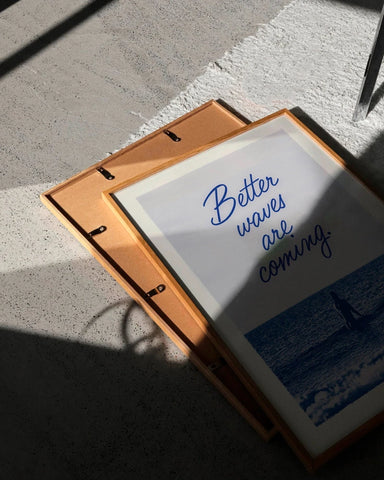 Better
waves
are
coming.